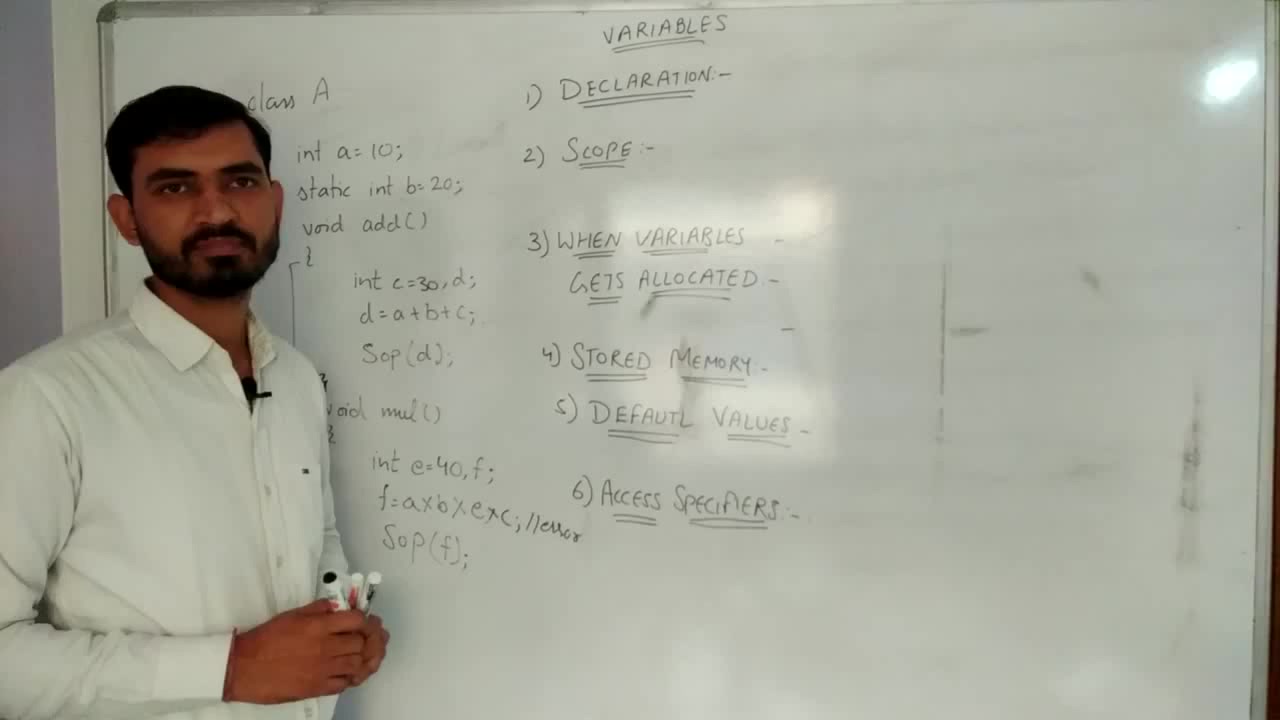 VARIABLES
class A
int a=10;
static int b=20;
void add()
{
int c=30,d;
d=a+b+c;
Sop(d);
}
void mul()
{
int e=40,f;
f=a×b×e×c; //error
Sop(f);
1) DECLARATION:-
2) SCOPE:-
3) WHEN VARIABLES -
GETS ALLOCATED:-
-
4) STORED MEMORY:-
5) DEFAUTL VALUES -
6) ACCESS SPECIFIERS:-